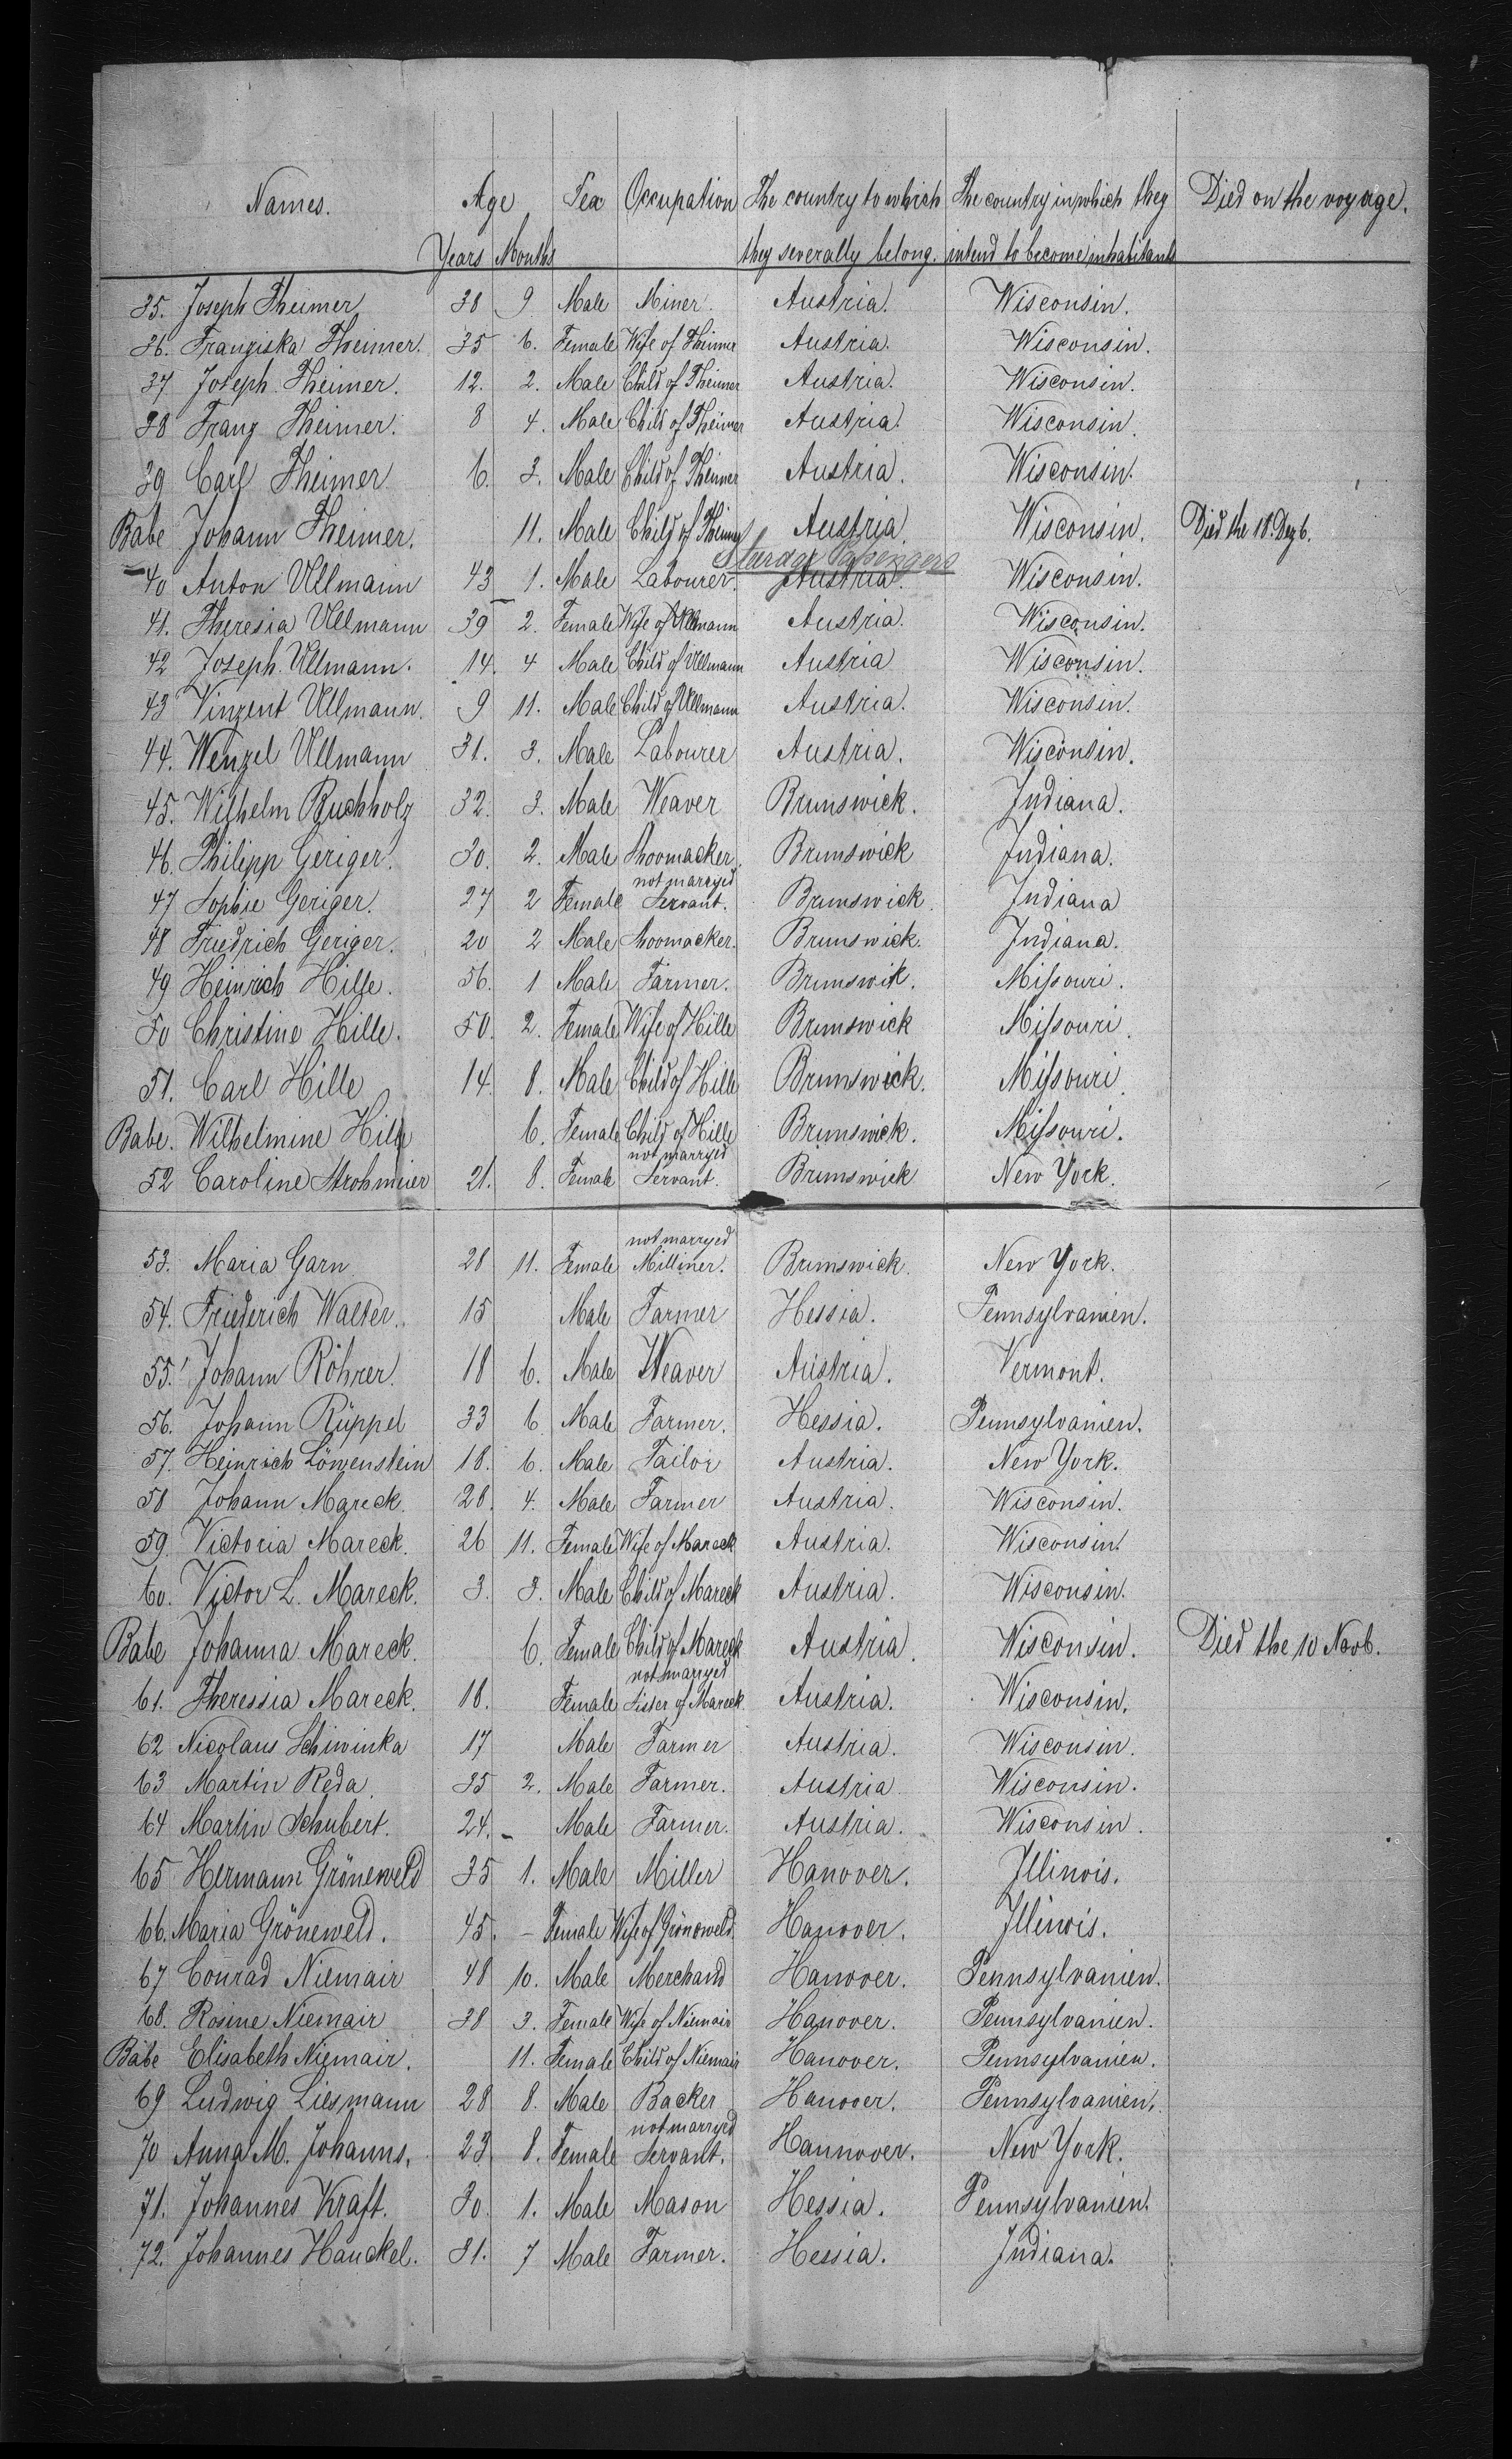 Names. Age Sex Occupation The country to which The country in which they Died on the voyage.
Years Months they severally belong. intend to become inhabitants
35. Joseph Theimer 38 9 Male Miner. Austria. Wisconsin.
36. Franziska Theimer. 35 6. Female Wife of Theimer Austria. Wisconsin.
37 Joseph Theimer. 12. 2. Male Child of Theimer Austria. Wisconsin.
38 Franz Theimer. 8 4. Male Child of Theimer Austria. Wisconsin.
39 Carl Theimer 6. 3. Male Child of Theimer Austria. Wisconsin.
Babe Johann Theimer. 11. Male Child of Theimer Austria. Wisconsin. Died the 18. Dezb.
Steerage Passengers
40 Anton Ullmann 43 1. Male Labourer. Austria. Wisconsin.
41. Theresia Ullmann 39 2. Female Wife of Ullmann Austria. Wisconsin.
42 Joseph Ullmann. 14. 4 Male Child of Ullmann Austria Wisconsin.
43 Vinzent Ullmann. 9 11. Male Child of Ullmann Austria. Wisconsin.
44. Wenzel Ullmann 31. 3. Male Labourer Austria. Wisconsin.
45. Wilhelm Buchholz 32. 3. Male Weaver Brunswick. Indiana.
46. Philipp Geriger. 30. 2. Male Shoomacker. Brunswick Indiana.
not marryed
47 Sophie Geriger. 27 2 Female Servant. Brunswick. Indiana
48 Friedrich Geriger. 20 2 Male Shoomacker. Brunswick. Indiana.
49 Heinrich Hille. 56. 1 Male Farmer. Brunswik. Missouri.
50 Christine Hille. 50. 2. Female Wife of Hille Brunswick Missouri.
51. Carl Hille 14. 8. Male Child of Hille Brunswick. Missouri.
Babe. Wilhelmine Hille 6. Female Child of Hille Brunswick. Missouri.
not marryed
52 Caroline Strohmeier 21. 8. Female Servant. Brunswick New York.
not marryed
53. Maria Garn 28 11. Female Milliner. Brunswick. New York.
54. Friederich Walter. 15 Male Farmer Hessia. Pennsylvanien.
55. Johann Röhrer. 18 6. Male Weaver Austria. Vermont.
56. Johann Rüppel 33 6 Male Farmer. Hessia. Pennsylvanien.
57. Heinrich Löwenstein 18. 6. Male Tailor Austria. New York.
58 Johann Mareck. 28. 4. Male Farmer Austria. Wisconsin.
59. Victoria Mareck. 26 11. Female Wife of Mareck Austria. Wisconsin.
60. Victor L. Mareck. 3. 3. Male Child of Mareck Austria. Wisconsin.
Babe Johanna Mareck. 6. Female Child of Mareck Austria. Wisconsin. Died the 10 Novb.
not marryed
61. Theressia Mareck. 18. Female Sister of Mareck. Austria. Wisconsin.
62 Nicolaus Schiwinka 17 Male Farmer Austria. Wisconsin.
63 Martin Reda. 35 2. Male Farmer. Austria Wisconsin.
64 Martin Schubert. 24. - Male Farmer. Austria. Wisconsin.
65 Hermann Gröneweld 35 1. Male Miller Hanover. Illinois.
66. Maria Gröneweld. 45. - Female Wife of Gröneweld. Hanover. Illinois.
67 Conrad Niemair 48 10. Male Merchand Hanover. Pennsylvanien.
68. Rosine Niemair 38 3. Female Wife of Niemair Hanover. Pennsylvanien.
Babe Elisabeth Niemair. 11. Female Child of Niemair Hanover. Pennsylvanien.
69 Ludwig Liesmann 28 8. Male Backer Hanover. Pennsylvanien.
not marryed
70 Anna M. Johanns. 23 8. Female Servant. Hannover. New York.
71. Johannes Kraft. 30. 1. Male Mason Hessia. Pennsylvanien.
72. Johannes Hauckel. 31. 7 Male Farmer. Hessia. Indiana.